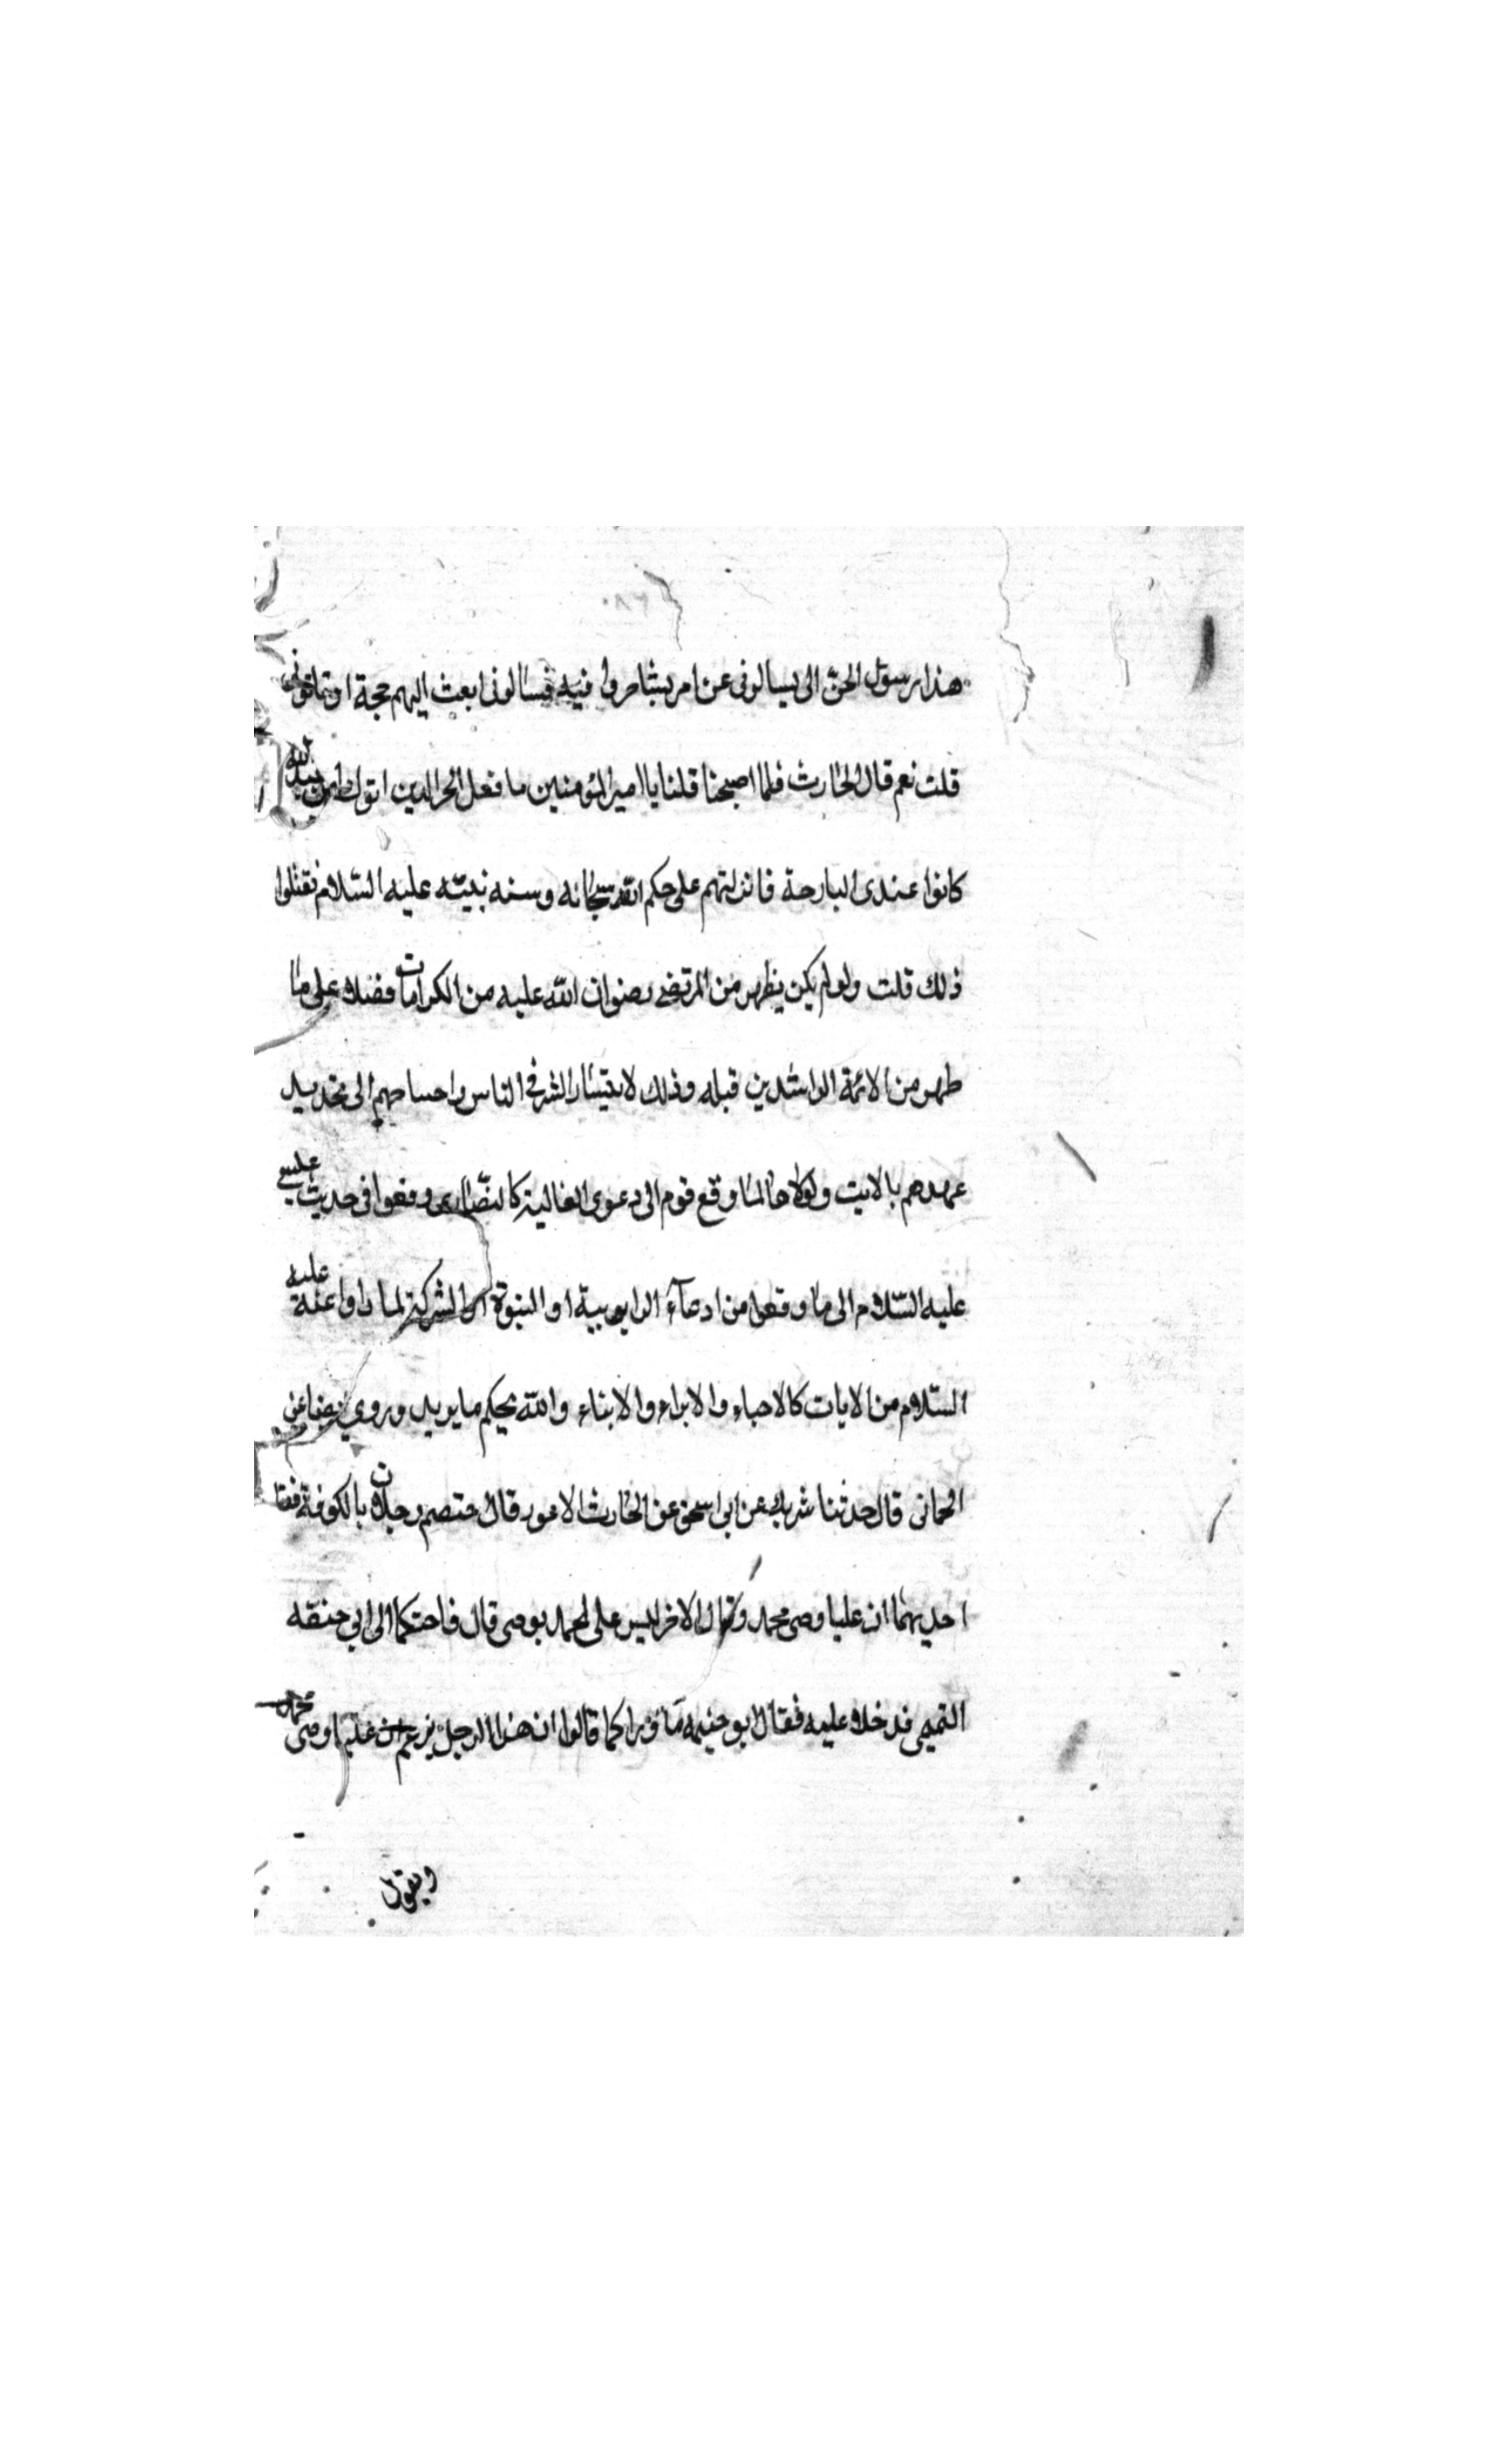 هذا رسول الجن الى يسالونى عن امر يشاجروا فيه فسالونى ابعث اليهم حجة او
قلت نعم قال الحارث فلما اصبحنا قلنا يا امير المؤمنين ما فعل الذين اتوك
كانوا عندى البارحة فانزلتهم على حكم الله سبحانه وسنه نبيّه عليه السّلام فقبلوا
ذلك قلت ولو لم يكن يظهر من المرتضى رضوان الله عليه من الكرامات فضلا على ما
ظهر من الائمة الراشدين قبله وذلك لانتشار الشر فى الناس واحتياجهم الى تجديد
عهدهم بالايت ولولا لما وقع قوم الى دعوى الغالية كالنصارى وقعوا فى حديث عيسى
عليه السّلام الى ما وقعوا من ادعاء الرابوبية او النبوة او الشركة لما راوا عنه عليه
السّلام من الايات كالاحياء والابراء والابناء والله يحكم ما يريد وروى ايضا عن
الحمانى قال حدثنا شريك عن ابى اسحق عن الحارث الاعور قال اختصم رجلان بالكوفة فقا
احديهما ان عليا وصى محمد وقال الاخر ليس على لمحمد بوصى قال فاحتكما الى ابى حنيفه
التميمى فدخلا عليه فقال ابو حنيفه ما وراكما قالوا ان هذا الرجل يزعم ان عليا وصى محمد
ويقول